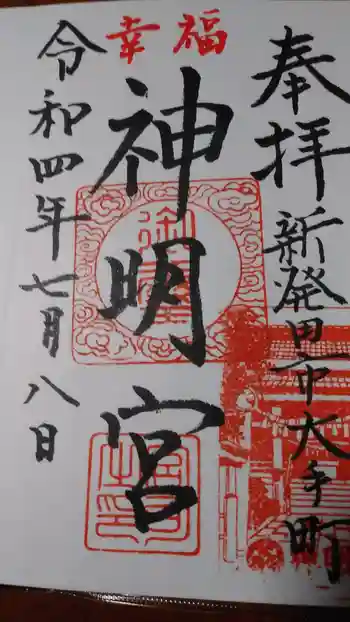 奉拝
新発田市大手町
幸福
神明宮
令和四年七月八日